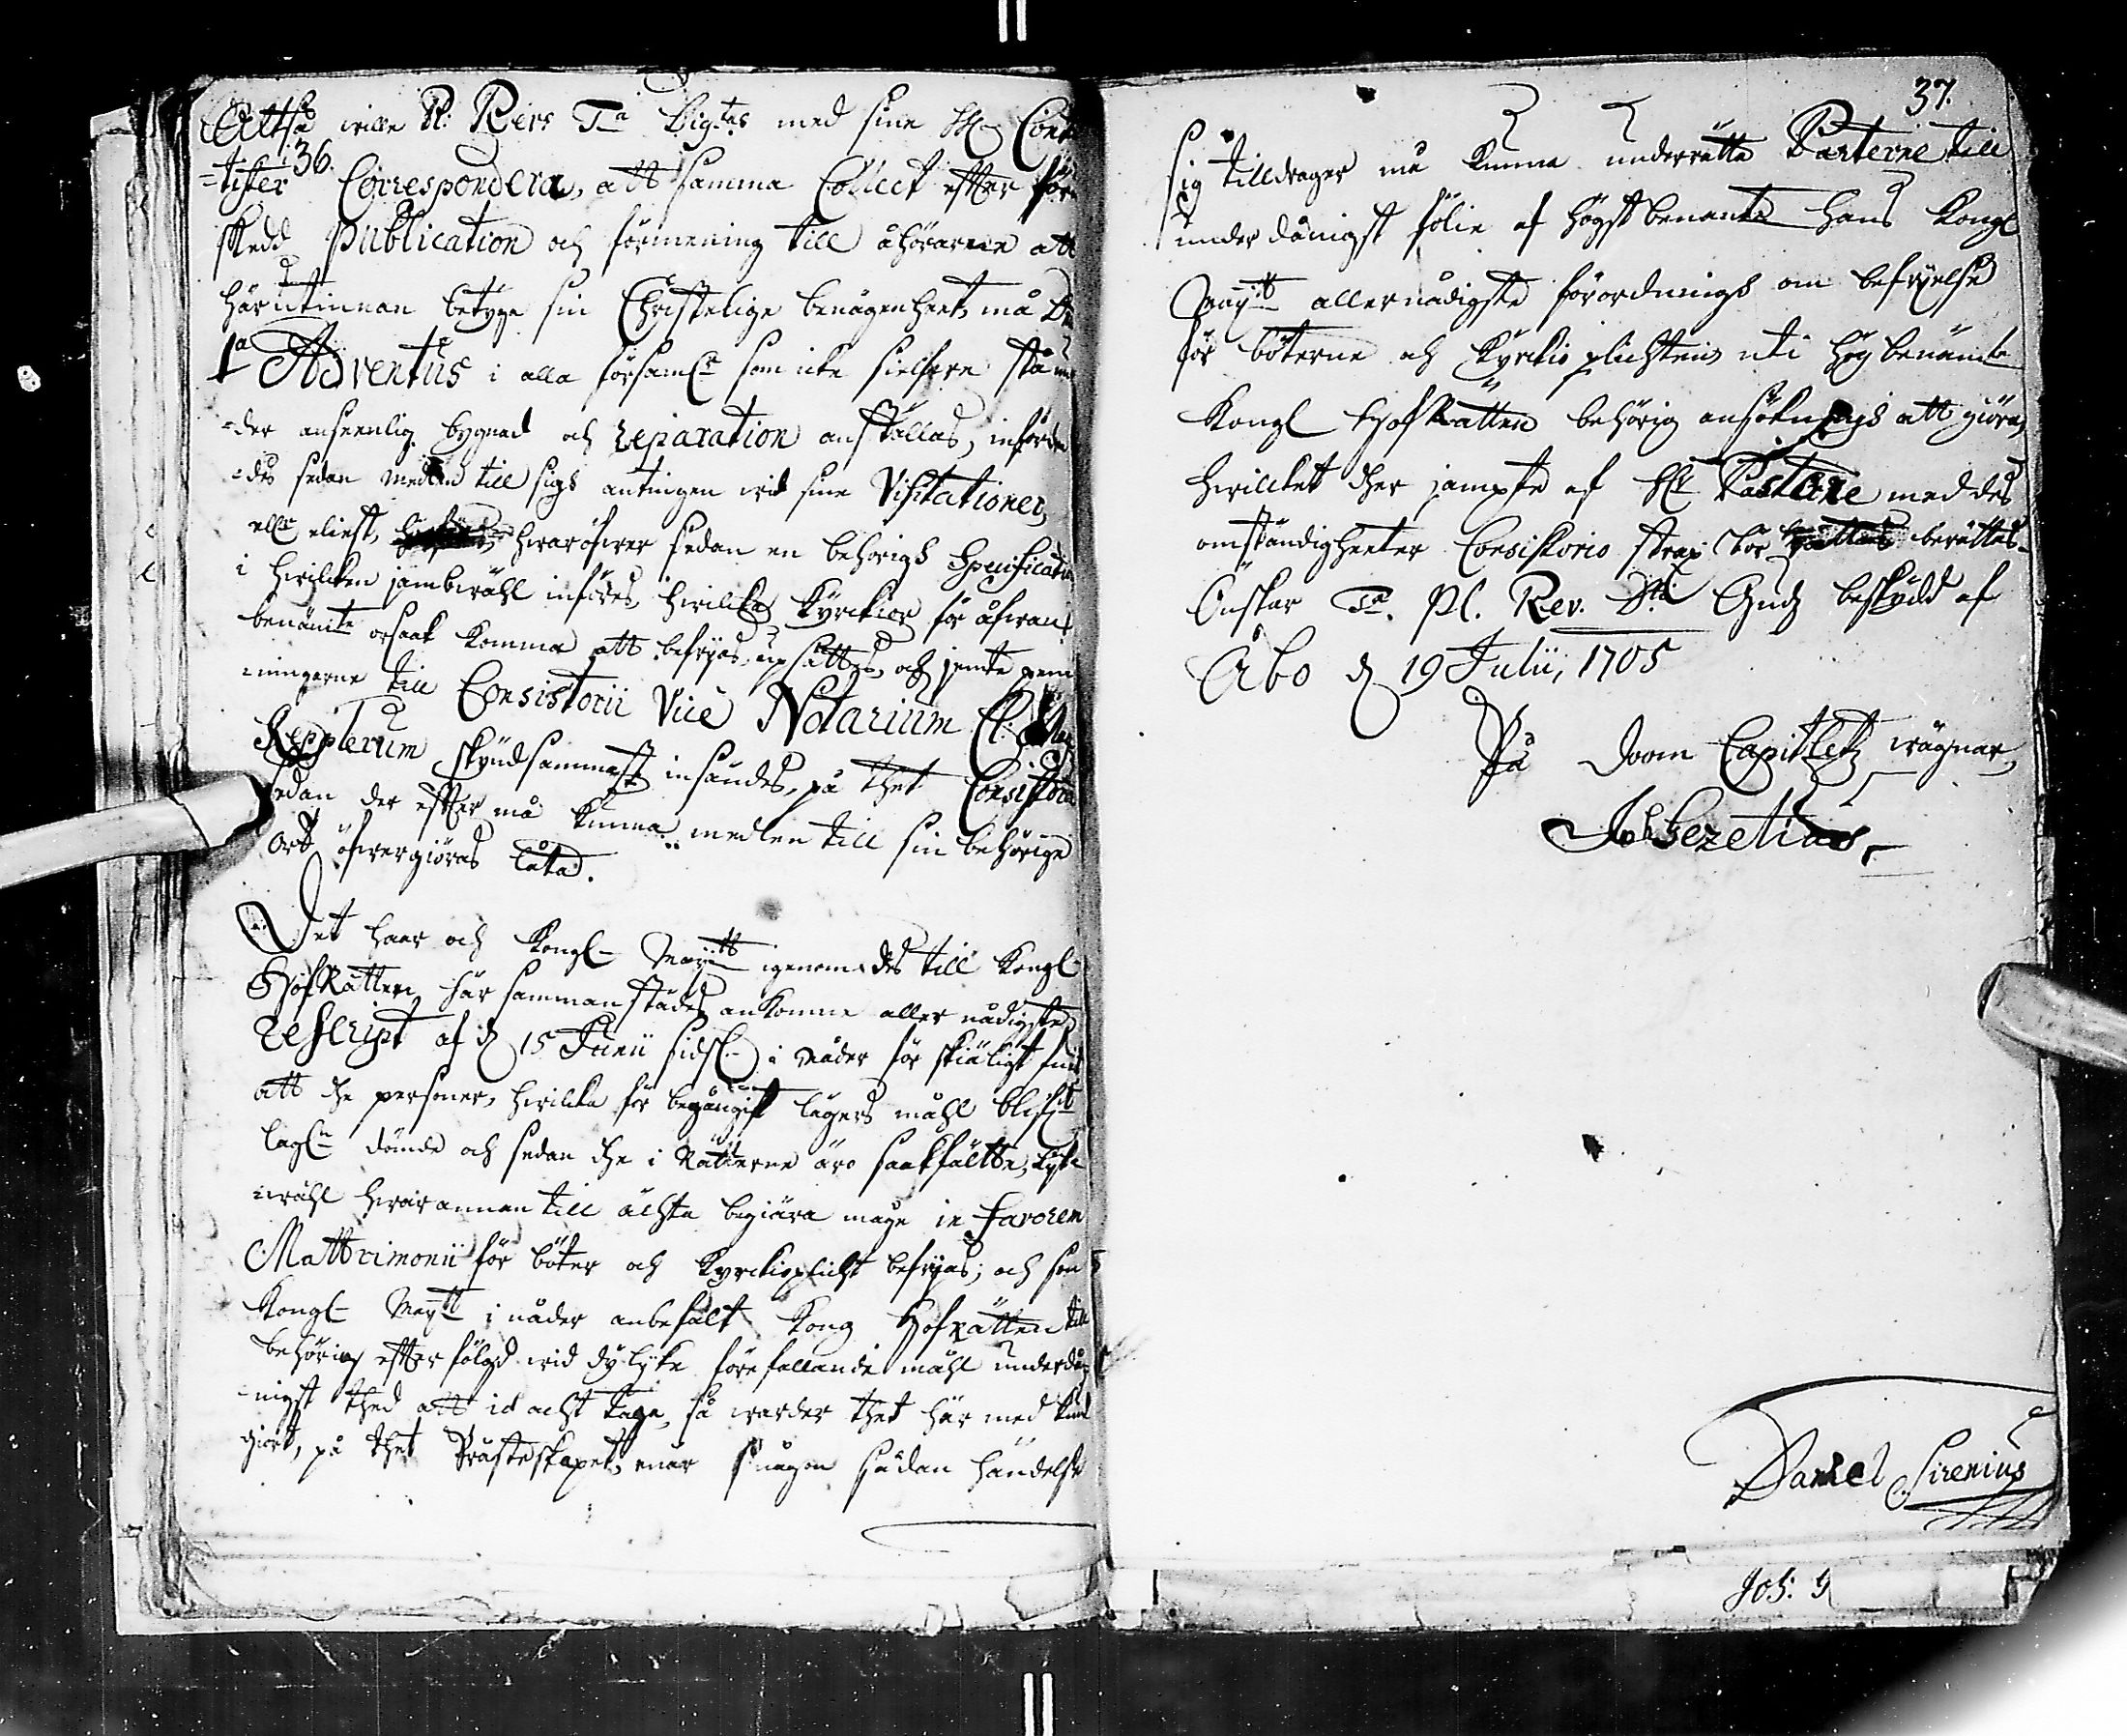 Altså wille Pl: Rev:s T:a Dig:tas med sine HH Cont
=tister 36. Correspondera, att samma Collect effter för
skedd Publication och förmening till åhörarne att
härutinnan betyga sin Christelige benägenheet, må D
1a Adventûs i alla församl:r som icke sielfve stå
=der anseenlig bygnad och reparation anställas, inford
=des sedan medlen till sigh antingen wid sine Visitationer,
ell:r eliest, hwaröfwer sedan en behörigh Specificatio
i hwilcken jembwähl införes, hwilcka Kyrckior för åfwan
benämte orsaak komma att befryas, upsättes, och jemte pen
ningarne till Consistorii Vice Notarium Cl: Mag
Kepplerum skyndsammast insändes, på thet Consistor
sedan der effter må kunna medlen till sin behörige
ort öfwergiöras låta.
Det haar och Kongl Maij:tt igenom des till Kongl
Hofrätten här sammanstädes ankomne aller nådigste
rescript af d 15 Junii sidstl: i nåder för skiäligt funn
att the personer, hwilcka för begångit lägers måhl blifwit
lagl:n dömde och sedan the i Rätterne äro saakfälte, lyke
wähl hwarannan till ächta begiära måge in Favorem
Mattrimonii för böter och Kyrckioplicht befryas; och som
Kongl Maij:tt i nåder anbefalt Kong Hofrätten till
behörig effterfölgd wid dylyke förefallande måhl underdå
=nigst thed att i acht taga, så warder thet här med kun
giort, på thet Prästeskapet, när någon sådan händelse
37.
sig tilldrager må kunna underrätta Parterne till
underdånigst fölie af högstbenämte Hans Kongl
Maij:tts allernådigste förordningh om befryelse
för böterne och Kyrckioplichten uti högbenämte
Kongl Hofrätten behörig ansökningh att giöra,
hwilcket ther jempte af H:r Pastorne med des
omständigheeter Consistorio strax bör berättas.
Önskar T:a Pl. Rev. D:t Gudz beskydd af
Åbo d 19 Julii, 1705
På Doom Capitletz wägnar,
Joh Gezelius.
Daniel Sirenius
Joh: G